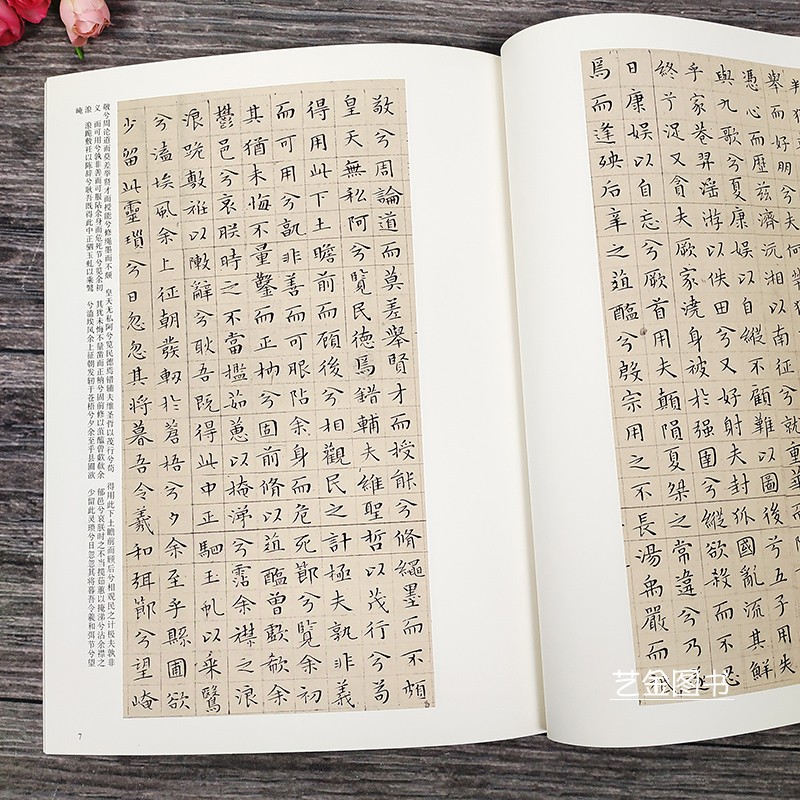 舉而好朋兮
憑心而歷茲濟沅湘以南征兮就重華
與九歌兮夏康娛以自縱不顧難以圖後兮五子用失
乎家巷羿淫游以佚田兮又好射夫封狐國亂流其鮮
終兮浞又貪夫厥家澆身被於强圉兮縱欲殺而不忍
日康娛以自忘兮厥首用夫顛隕夏桀之常違兮乃遂
焉而逢殃后辛之菹醢兮殷宗用之不長湯禹嚴而
敬兮周論道而莫差舉賢才而授能兮脩繩墨而不頗
皇天無私阿兮覽民德焉錯輔夫維聖哲以茂行兮苟
得用此下土瞻前而顧後兮相觀民之計極夫孰非義
而可用兮孰非善而可服阽余身而危死節兮覽余初
其猶未悔不量鑿而正枘兮固前脩以菹醢曾歔欷余
鬱邑兮哀朕時之不當攬茹蕙以掩涕兮霑余襟之浪
浪跪敷衽以陳辭兮耿吾既得此中正駟玉虬以乘鷖
兮溘埃風余上征朝發軔於蒼梧兮夕余至乎縣圃欲
少留此靈瑣兮日忽忽其將暮吾令羲和弭節兮望崦
敬兮周论道而莫差举贤才而授能兮修绳墨而不颇 皇天无私阿兮览民德焉错辅夫维圣哲以茂行兮苟 得用此下土瞻前而顾后兮相观民之计极夫孰非
义 而可用兮孰非善而可服阽余身而危死节兮览余初 其犹未悔不量凿而正枘兮固前修以菹醢曾歔欷余 郁邑兮哀朕时之不当揽茹蕙以掩涕兮沾余襟之
浪 浪跪敷衽以陈辞兮耿吾既得此中正驷玉虬以乘鹥 兮溘埃风余上征朝发轫于苍梧兮夕余至乎县圃欲 少留此灵琐兮日忽忽其将暮吾令羲和弭节兮望
崦
7
艺金图书